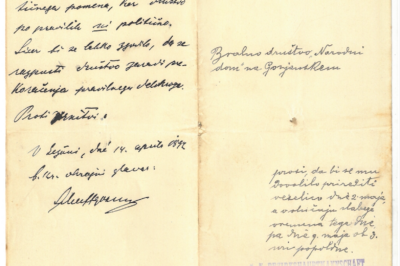 pomena, ker društvo
po pravilih ni politično.
Sicer bi se lahko zgodilo, da se
razpusti društvo zaradi pre-
koračenja pravilnega delokroga.
Proti
V Sežani, dné 14. aprila 18
c. kr. okrajni glavar:
Bralno društvo „Narodni
dom" na Gorjanskem
prosi, da bi se mu
dovolilo prirediti
veselico dné 2. maja,
a v slučaju slabega
vremena tega dné
pa dné 9. maja ob 3.
uri popoldne.